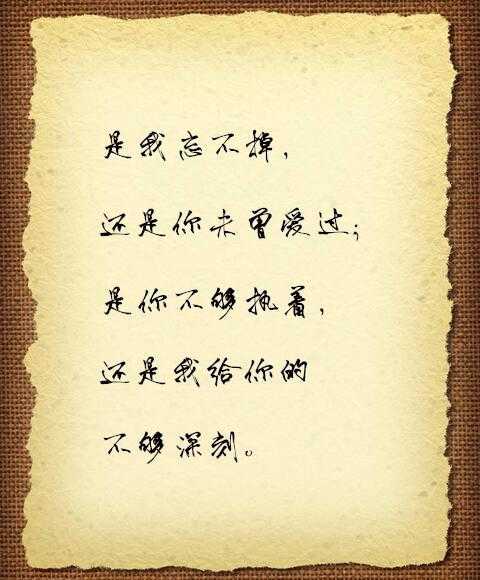 是我忘不掉，
还是你未曾爱过；
是你不够执着，
还是我给你的
不够深刻。